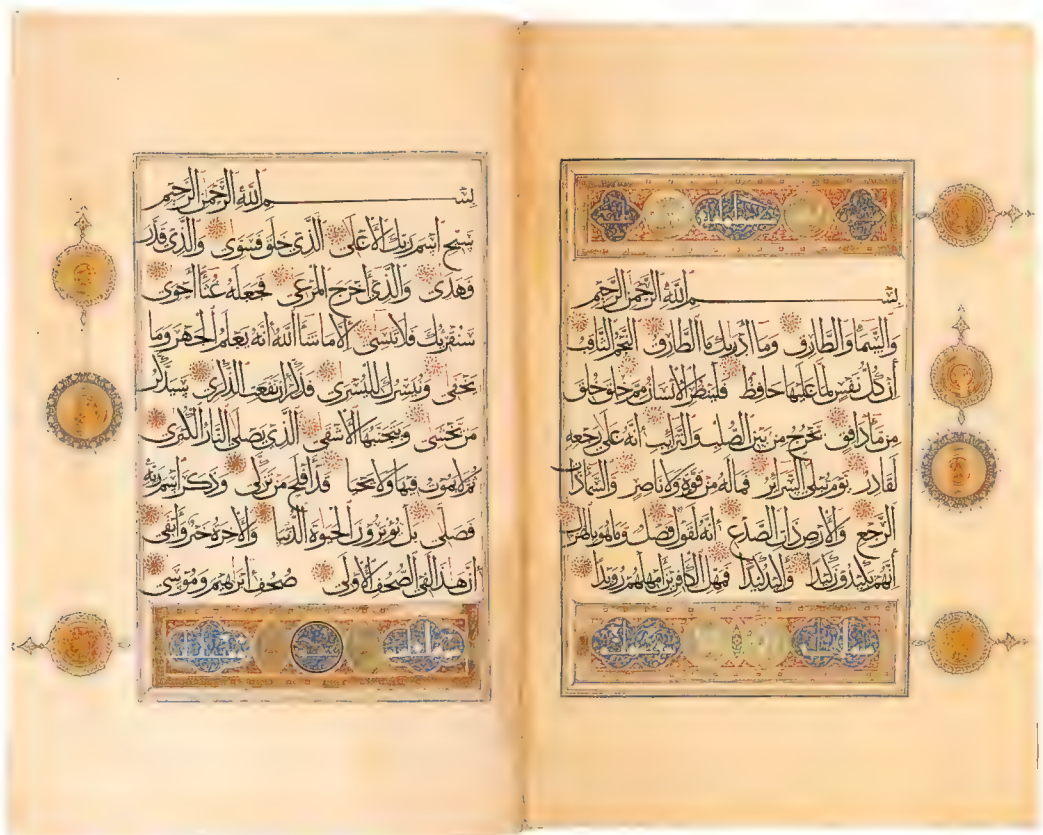 بسم الله الرحمن الرحيم
والسماء والطارق وما أدريك ما الطارق النجم الثاقب
إن كل نفس لما عليها حافظ فلينظر الإنسان مم خلق خلق
من ماء دافق يخرج من بين الصلب والترائب إنه على رجعه
لقادر يوم تبلى السرائر فما له من قوة ولا ناصر والسماء ذات
الرجع والأرض ذات الصدع إنه لقول فصل وما هو بالهزل
إنهم يكيدون كيدا وأكيد كيدا فمهل الكافرين أمهلهم رويدا
بسم الله الرحمن الرحيم
سبح اسم ربك الأعلى الذي خلق فسوى والذي قدر
فهدى والذي أخرج المرعى فجعله غثاء أحوى
سنقرئك فلا تنسى إلا ما شاء الله إنه يعلم الجهر وما
يخفى ونيسرك لليسرى فذكر إن نفعت الذكرى سيذكر
من يخشى ويتجنبها الأشقى الذي يصلى النار الكبرى
ثم لا يموت فيها ولا يحيا قد أفلح من تزكى وذكر اسم ربه
فصلى بل تؤثرون الحيوة الدنيا والآخرة خير وأبقى
إن هذا لفي الصحف الأولى صحف إبرهيم وموسى